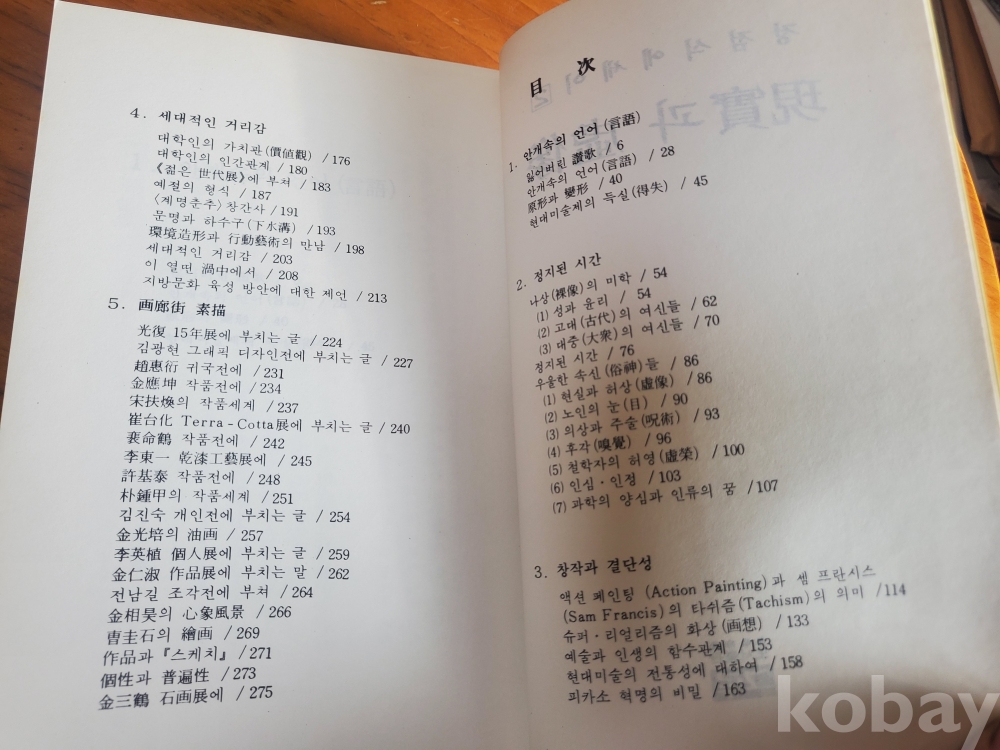 4. 세대적인 거리감
대학인의 가치관(價値觀) / 176
대학인의 인간관계 / 180
《젊은 世代展》에 부쳐 / 183
예절의 형식 / 187
〈계명춘추〉 창간사 / 191
문명과 하수구(下水溝) / 193
環境造形과 行動藝術의 만남 / 198
세대적인 거리감 / 203
이 열띤 渦中에서 / 208
지방문화 육성 방안에 대한 제언 / 213
5. 画廊街 素描
光復 15年展에 부치는 글 / 224
김광현 그래픽 디자인전에 부치는 글 / 227
趙惠衍 귀국전에 / 231
金應坤 作품전에 / 234
宋扶煥의 작품세계 / 237
崔台化 Terra-Cotta展에 부치는 글 / 240
裵命鶴 작품전에 / 242
李東一 乾漆工藝展에 / 245
許基泰 작품전에 / 248
朴鍾甲의 작품세계 / 251
김진숙 개인전에 부치는 글 / 254
金光培의 油画 / 257
李英植 個人展에 부치는 글 / 259
金仁淑 作品展에 부치는 말 / 262
전남길 조각전에 부쳐 / 264
金相昊의 心象風景 / 266
曺圭石의 繪画 / 269
作品과 『스케치』 / 271
個性과 普遍性 / 273
金三鶴 石画展에 / 275
目 次
1. 안개속의 언어(言語)
잃어버린 讚歌 / 6
안개속의 언어(言語) / 28
原形과 變形 / 40
현대미술제의 득실(得失) / 45
2. 정지된 시간
나상(裸像)의 미학 / 54
(1) 성과 윤리 / 54
(2) 고대(古代)의 여신들 / 62
(3) 대중(大衆)의 여신들 / 70
정지된 시간 / 76
우울한 속신(俗神)들 / 86
(1) 현실과 허상(虛像) / 86
(2) 노인의 눈(目) / 90
(3) 의상과 주술(呪術) / 93
(4) 후각(嗅覺) / 96
(5) 철학자의 허영(虛榮) / 100
(6) 인심·인정 / 103
(7) 과학의 양심과 인류의 꿈 / 107
3. 창작과 결단성
액션 페인팅 (Action Painting)과 쌤 프란시스
(Sam Francis)의 타쉬즘(Tachism)의 의미 / 114
슈퍼·리얼리즘의 화상(画想) / 133
예술과 인생의 함수관계 / 153
현대미술의 전통성에 대하여 / 158
피카소 혁명의 비밀 / 163
장정식에세이
現實과
kobay